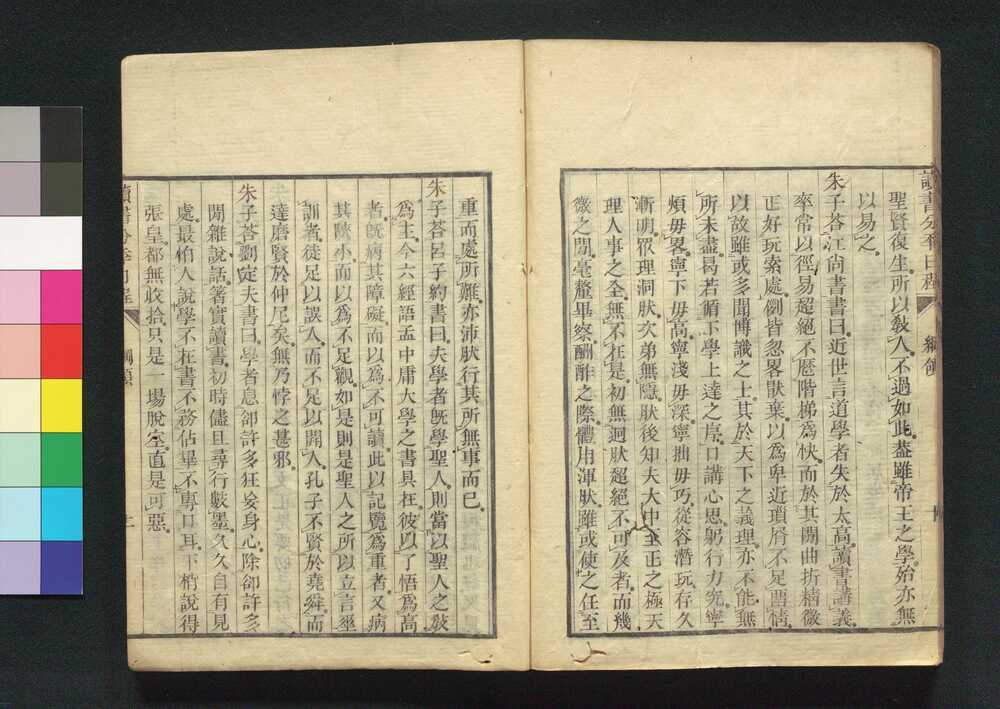 讀書分年日程 綱領
聖賢復生所以敎人不過如此蓋雖帝王之學始亦無
以易之
朱子荅江尚書書曰近世言道學者失於太高讀書講義
率常以徑易超絕不歷階梯為快而於其間曲折精微
正好玩索處例皆忽畧猒棄以為卑近瑣屑不足畱情
以故雖或多聞博識之士其於天下之義理亦不能無
所未盡曷若循下學上達之序口講心思躬行力究寧
煩毋畧寧下毋高寧淺毋深寧拙毋巧從容潛玩存久
漸明衆理洞然次弟無隱然後知夫大中至正之極天
理人事之全無不在是初無迥然超絕不可及者而幾
微之間毫釐畢察酬酢之際體用渾然雖或使之任至
重而處所難亦沛然行其所無事而已
朱子荅呂子約書曰夫學者旣學聖人則當以聖人之敎
為主今六經語孟中庸大學之書具在彼以了悟為高
者旣病其障礙而以為不可讀此以記覽為重者又病
其陜小而以為不足觀如是則是聖人之所以立言垂
訓者徒足以誤人而不足以開人孔子不賢於堯舜而
達磨賢於仲尼矣無乃悖之甚邪
朱子荅劉定夫書曰學者息卻許多狂妄身心除卻許多
閒雜說話著實讀書初時儘且尋行數墨久久自有見
處最怕人說學不在書不務佔畢不專口耳下梢說得
張皇都無收拾只是一場脫空直是可惡
讀書分年日程 綱領